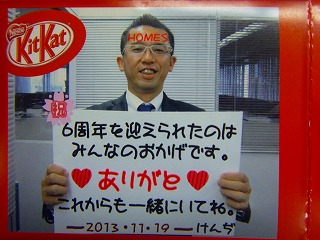 Nestlé
KitKat
HOMES
6周年を迎えられたのは
みんなのおかげです。
♥ありがと♥
これからも一緒にいてね。
2013・11・19 けんぢ